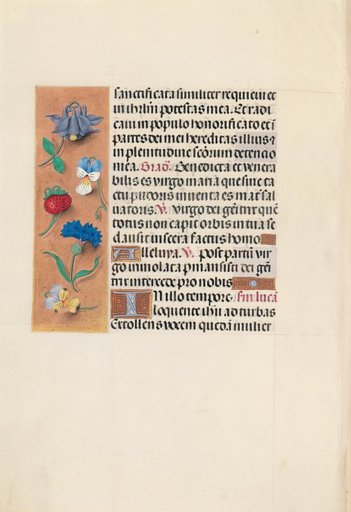 sanctificata similiter requieui et
in ihrlm potestas mea. Et radi
caui in populo honorificato et i
partes dei mei hereditas illius ⁊
in plenitudine scōrum detentio
mea. Grad̄. Benedicta et venera
bilis es virgo maria que sine ta
ctu pudoris inuenta es mat̄ sal
uatoris. V. Virgo dei genitrix quē
totus non capit orbis in tua se
clausit viscera factus homo
Alleluya. V. post partū vir
go inuiolata pmansisti dei gē
itrix intercede pro nobis
In illo tempore. Sm lucā
Loquente ihū ad turbas
Extollens vocem quedā mulier